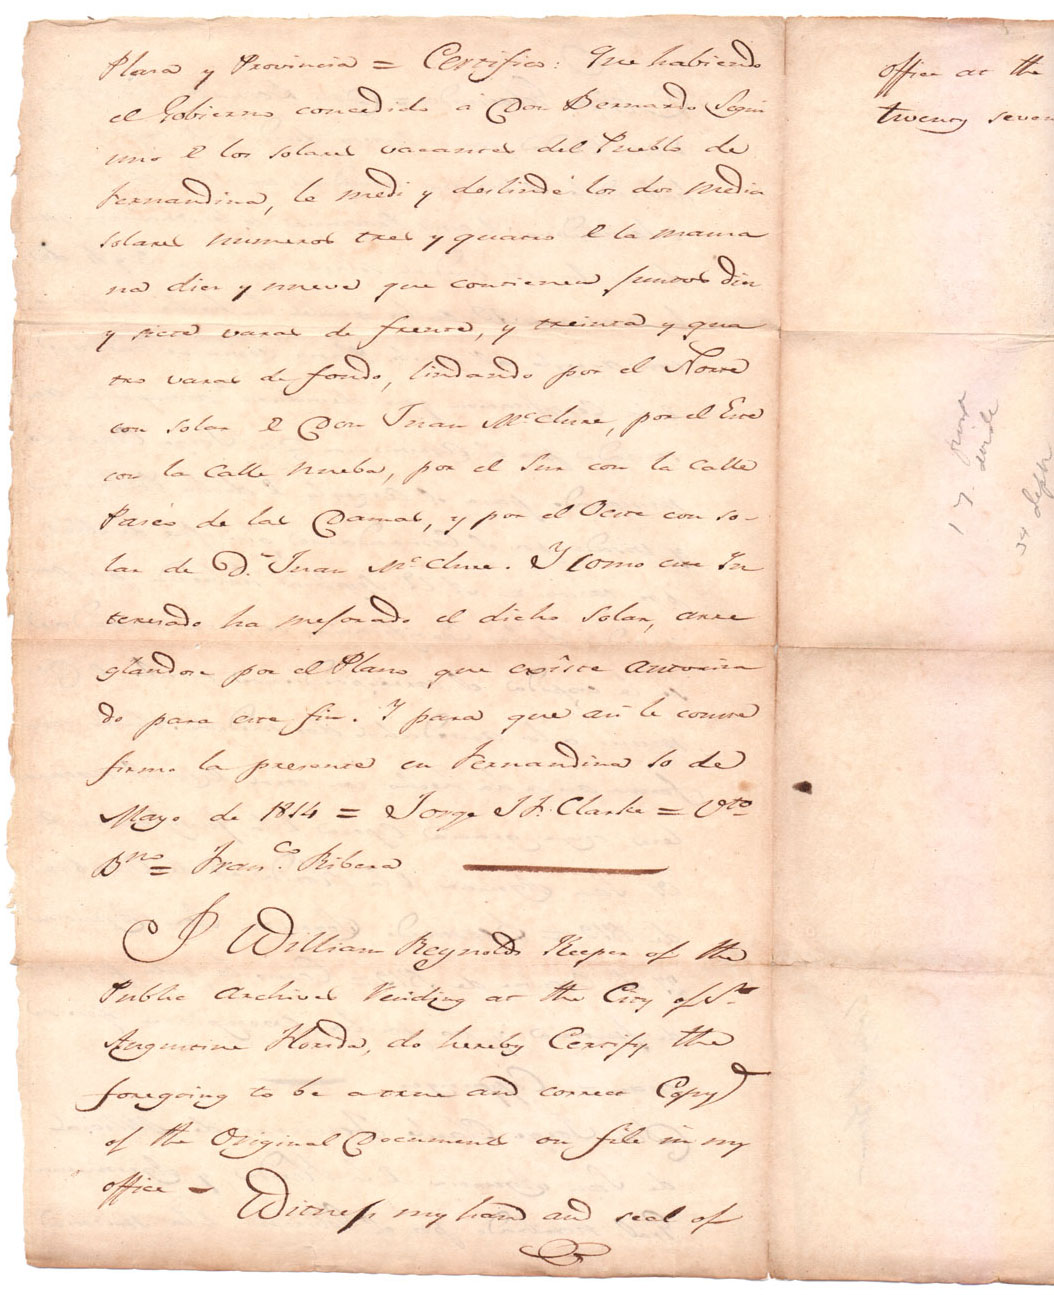 Plasa y Provincia = Certifico: Que habiendo
el Gobierno concedido á Don Bernardo Segui
uno de los solares vacantes del Pueblo de
Fernandina, le medi y deslindé los dos media
solares numeros tres y quatro de la mansa
na diez y nueve que contienen juntos diez
y siete varas de frente, y treinta y qua
tro varas de fondo, lindando por el Norte
con solar de Don Juan McClure, por el Este
con la Calle nueba, por el Sur con la Calle
Paséo de las Damas, y por el Oeste con so-
lar de Dn Juan McClure. Y como este In
teresado ha mejorado el dicho solar, arre
glandose por el Plano que existe autoriza
do para este fin. Y para que asi le conste
firmo la presente en Fernandina 10 de
Mayo de 1814 = Jorge J. F. Clarke = Vto
Bno = Franco Ribera
I William Reynolds Keeper of the
Public Archives at the City of St
Augustine Florida, do hereby Certify the
foregoing to be a true and correct Copy
of the Original Document on file in my
office -
Witness my hand and seal of
office at the
twenty seven
17. front
34 depth